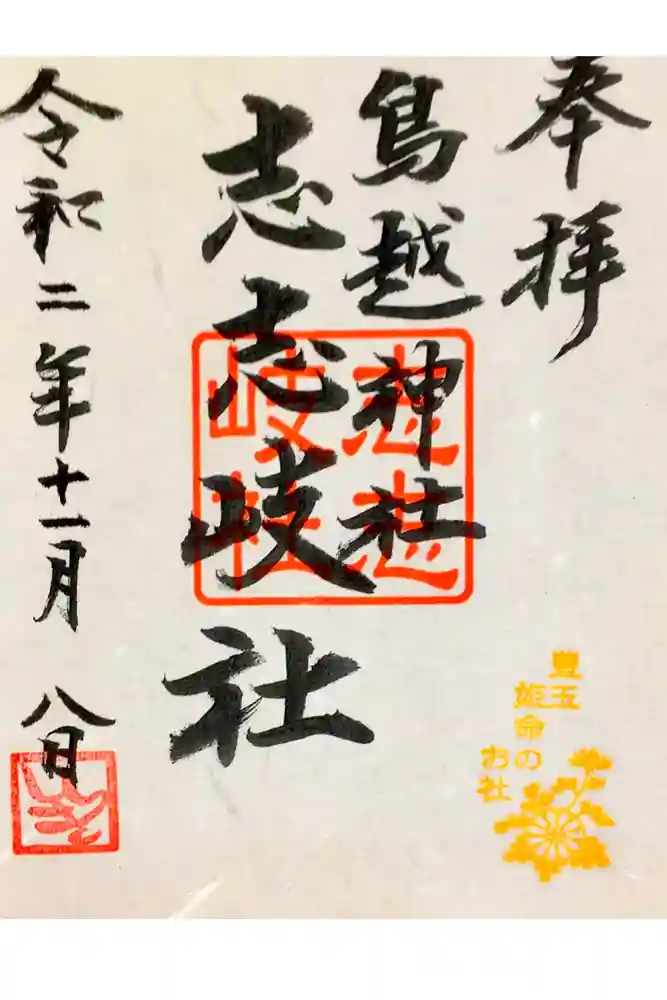 奉拝
鳥越神社
志志岐社
令和二年十一月八日
志志
岐社
豊玉
姫命の
お社